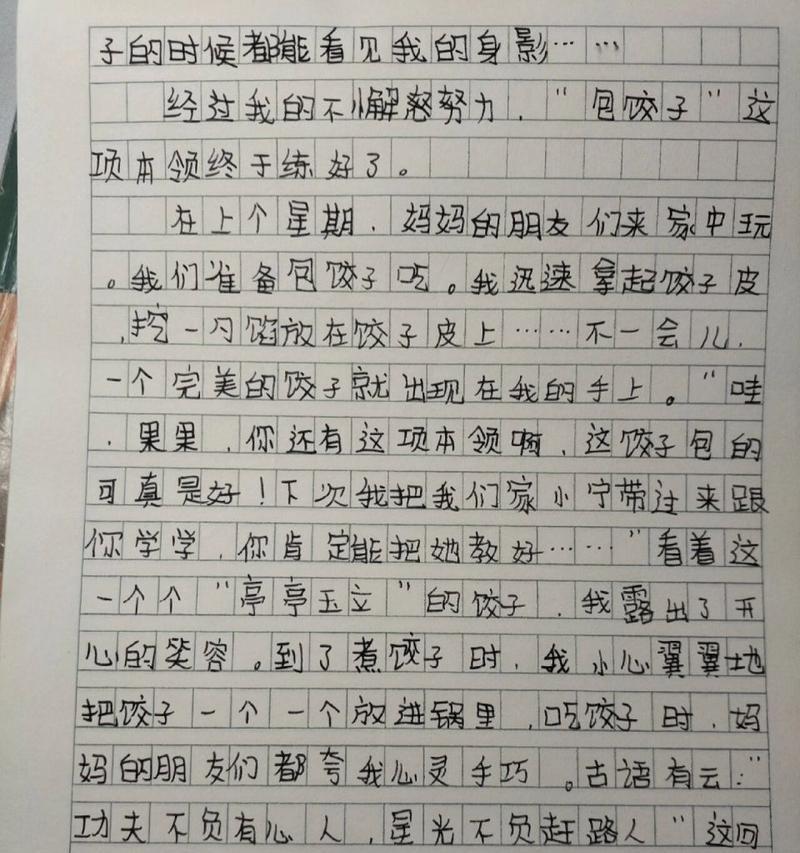 子的时候都能看见我的身影……
经过我的不懈努力，“包饺子”这
项本领终于练好了。
在上个星期，妈妈的朋友们来家中玩
。我们准备包饺子吃。我迅速拿起饺子皮
，挖一勺馅放在饺子皮上……不一会儿，
一个完美的饺子就出现在我的手上。“哇
，果果，你还有这项本领啊，这饺子包的
可真是好！下次我把我们家小宁带过来跟
你学学，你肯定能把她教好……”看着这
一个个“亭亭玉立”的饺子，我露出了开
心的笑容。到了煮饺子时，我小心翼翼地
把饺子一个一个放进锅里，吃饺子时，妈
妈的朋友们都夸我心灵手巧。古语有云：“
功夫不负有心人，星光不负赶路人”这回